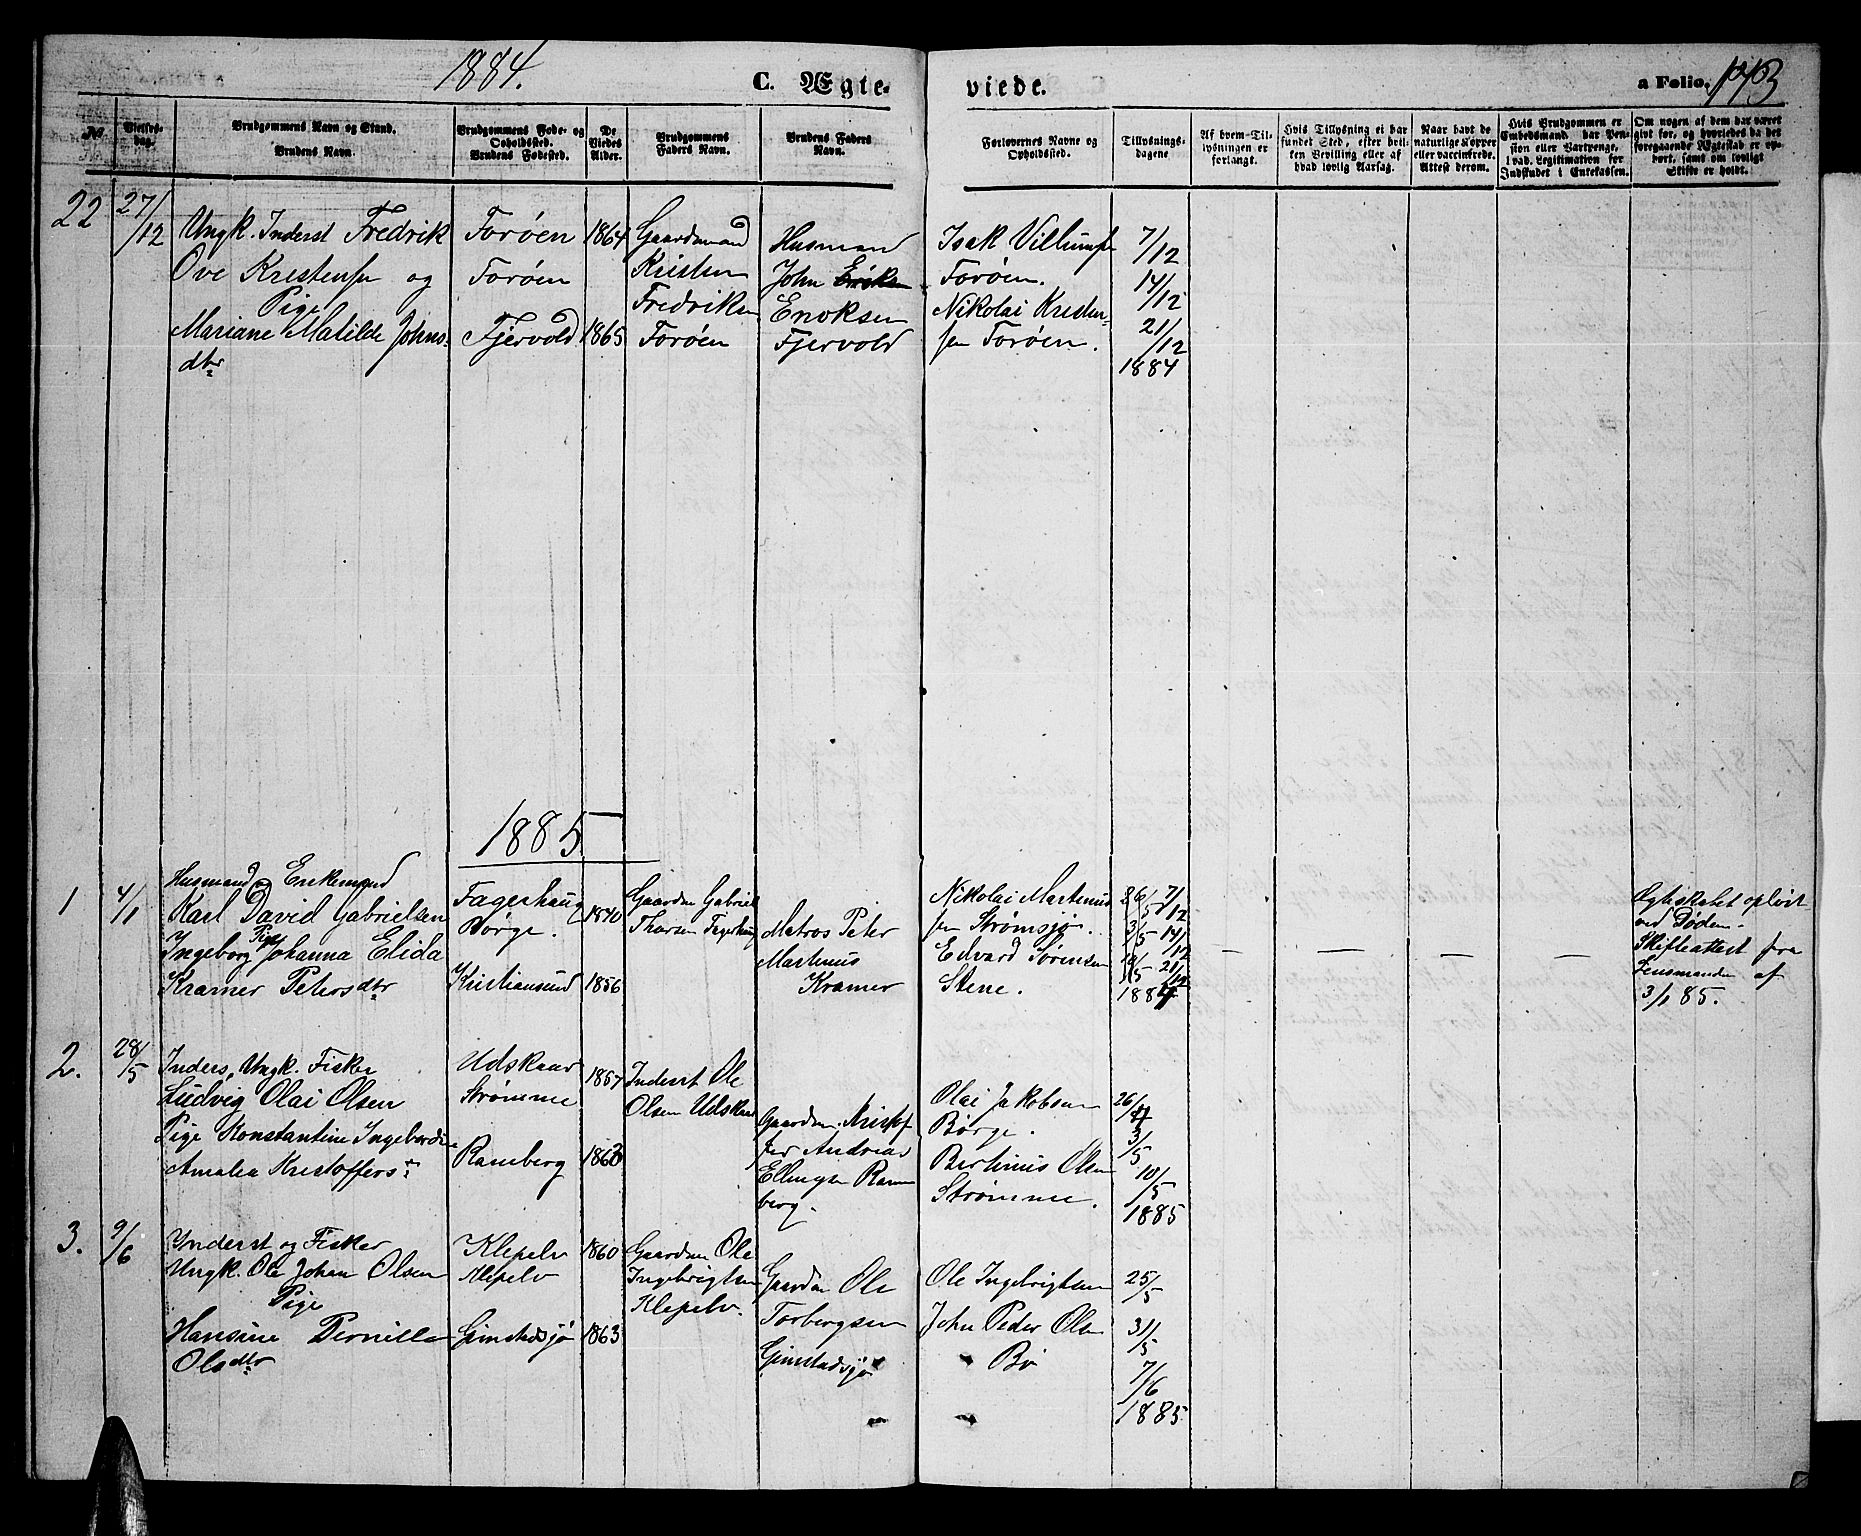 1884.
C. Ægte-
viede.
a Folio. 143
No.
Vielses-
dag.
Brudgommens Navn og Stand.
Brudens Navn.
Brudgommens Føde- og
Opholdssted.
Brudens Fødested.
De
Viedes
Alder.
Brudgommens
Faders Navn.
Brudens Faders
Navn.
Forlovernes Navne og
Opholdssted.
Tillysnings-
dagene
Af hvem Til-
lysningen er
forlangt.
Hvis Tillysning ei har
fundet Sted, efter hvil-
ken Bevilling eller af
hvad lovlig Aarsag.
Naar havt de
naturlige Kopper
eller vaccinerede.
Attest derom.
Hvis Brudgommen er
Embedsmand har Pen-
sion eller Vartpenge,
hvad Legitimation for
Indskudet i Enkekassen.
Om nogen af dem har været
gift før, og hvorledes da det
foregaaende Ægteskab er op-
hørt, samt om lovligt
Skifte er holdt.
22
27/12
Ungk. Inderst Fredrik
Ove Kristensen og
Pige
Mariane Matilde Johns-
dtr
Forøen
Forøen
Fjervold
1864
1865
Gaardmand
Kristen
Fredriksen
Forøen
Husmand
John
Enoksen
Fjervold
Isak Villumsen
Forøen.
Nikolai Kristen-
sen Forøen.
7/12
14/12
21/12
1884
1885
1
4/1
Husmand Enkemand
Karl David Gabrielsen
Pige
Ingeborg Johanna Elida
Kramer Petersdtr
Fagerhaug
Børge.
Kristiansund
1840
1856
Gaardm Gabriel
Thorsen Fagerhaug
Matros Peter
Martinus
Kramer
Nikolai Martinus
sen Strømsjø.
Edvard Sørensen
Stene.
7/12
14/12
21/12
1884
Ægteskabet opløst
ved Døden.
Skifteattest fra
Lensmanden af
3/1 85.
2.
28/5
Inders, Ungk. Fisker
Ludvig Olai Olsen
Pige Konstantine Ingebord
Amalea Kristoffers
Udskaar
Strømme
Ramberg
1857
1863
Inderst Ole
Olsen Udskaar
Gaardm. Kristof
fer Andreas
Ellingsen Ram
berg.
Olai Jakobsen
Børge.
Bertinus Olsen
Strømme.
26/4
3/5
10/5
1885
3.
9/6
Inderst og Fisker
Ungk. Ole Johan Olsen
Pige
Hansine Pernille
Olsdtr
Klepelv
Klepelv
Gimstadsjø
1860
1863
Gaardm Ole
Ingebrigtsen
Klepelv.
Gaardm Ole
Torbergsen
Gimstadsjø
Ole Ingebrigtsen
John Peder Olsen
Bø
25/5
31/5
7/6
1885